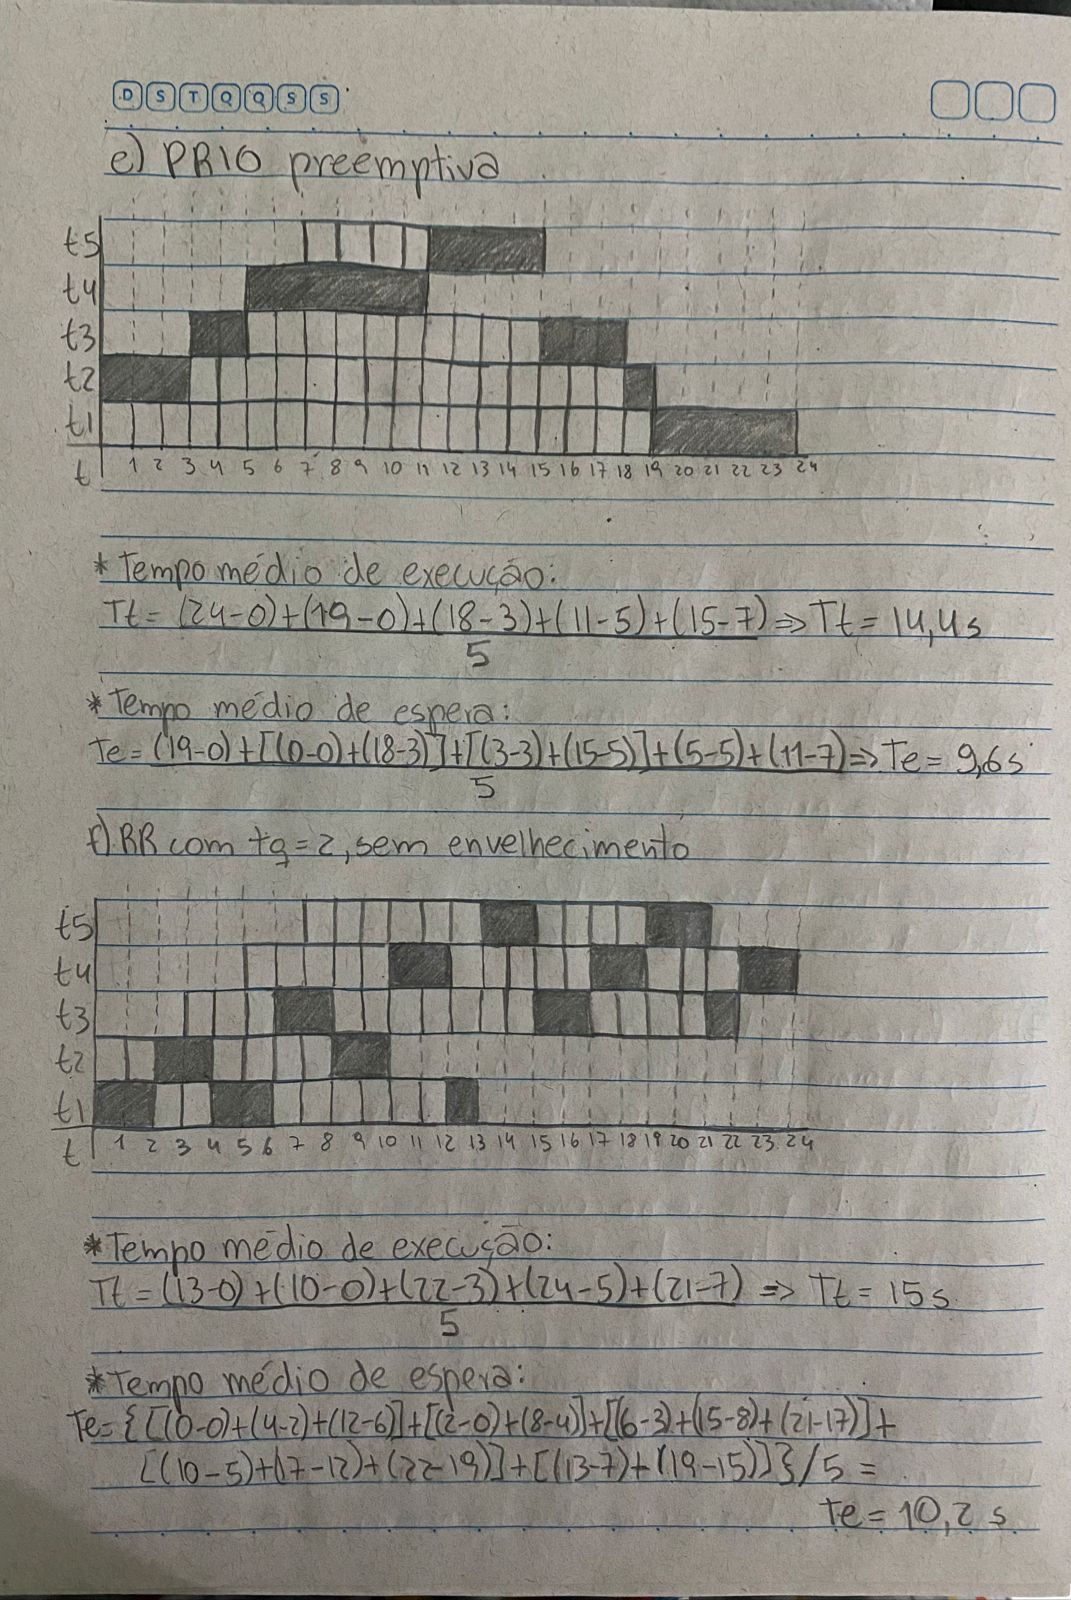 D S T Q Q S S
e) PRIO preemptiva
t5
t4
t3
t2
t1
t 1 2 3 4 5 6 7 8 9 10 11 12 13 14 15 16 17 18 19 20 21 22 23 24
* Tempo médio de execução:
Tt = (24-0)+(19-0)+(18-3)+(11-5)+(15-7) => Tt = 14,4s
5
* Tempo médio de espera:
Te = (19-0)+[(0-0)+(18-3)]+[(3-3)+(15-5)]+(5-5)+(11-7) => Te = 9,6s
5
f) RR com tq=2, sem envelhecimento
t5
t4
t3
t2
t1
t 1 2 3 4 5 6 7 8 9 10 11 12 13 14 15 16 17 18 19 20 21 22 23 24
* Tempo médio de execução:
Tt = (13-0)+(10-0)+(22-3)+(24-5)+(21-7) => Tt = 15s
5
* Tempo médio de espera:
Te={[(0-0)+(4-2)+(12-6)]+[(2-0)+(8-4)]+[(6-3)+(15-8)+(21-17)]+
[(10-5)+(17-12)+(22-19)]+[(13-7)+(19-15)]}/5 =
Te = 10,2 s